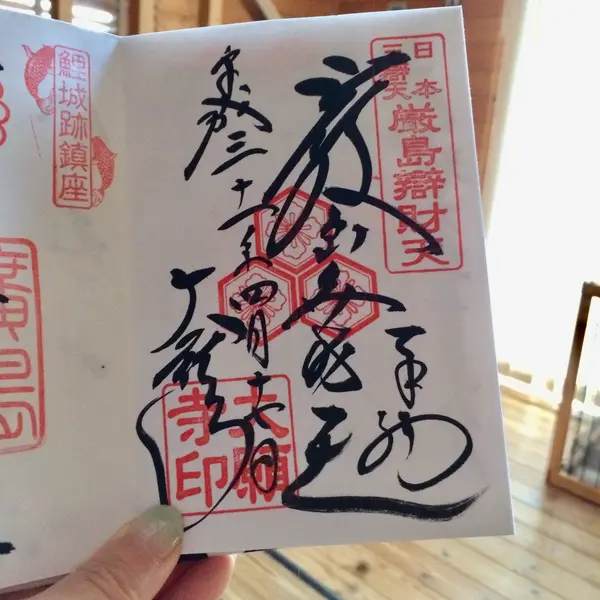 日本
三辨天
厳島辯財天
奉拝
厳島弁財天
平成三十一年四月
大願寺
大願寺印
鯉城跡鎮座